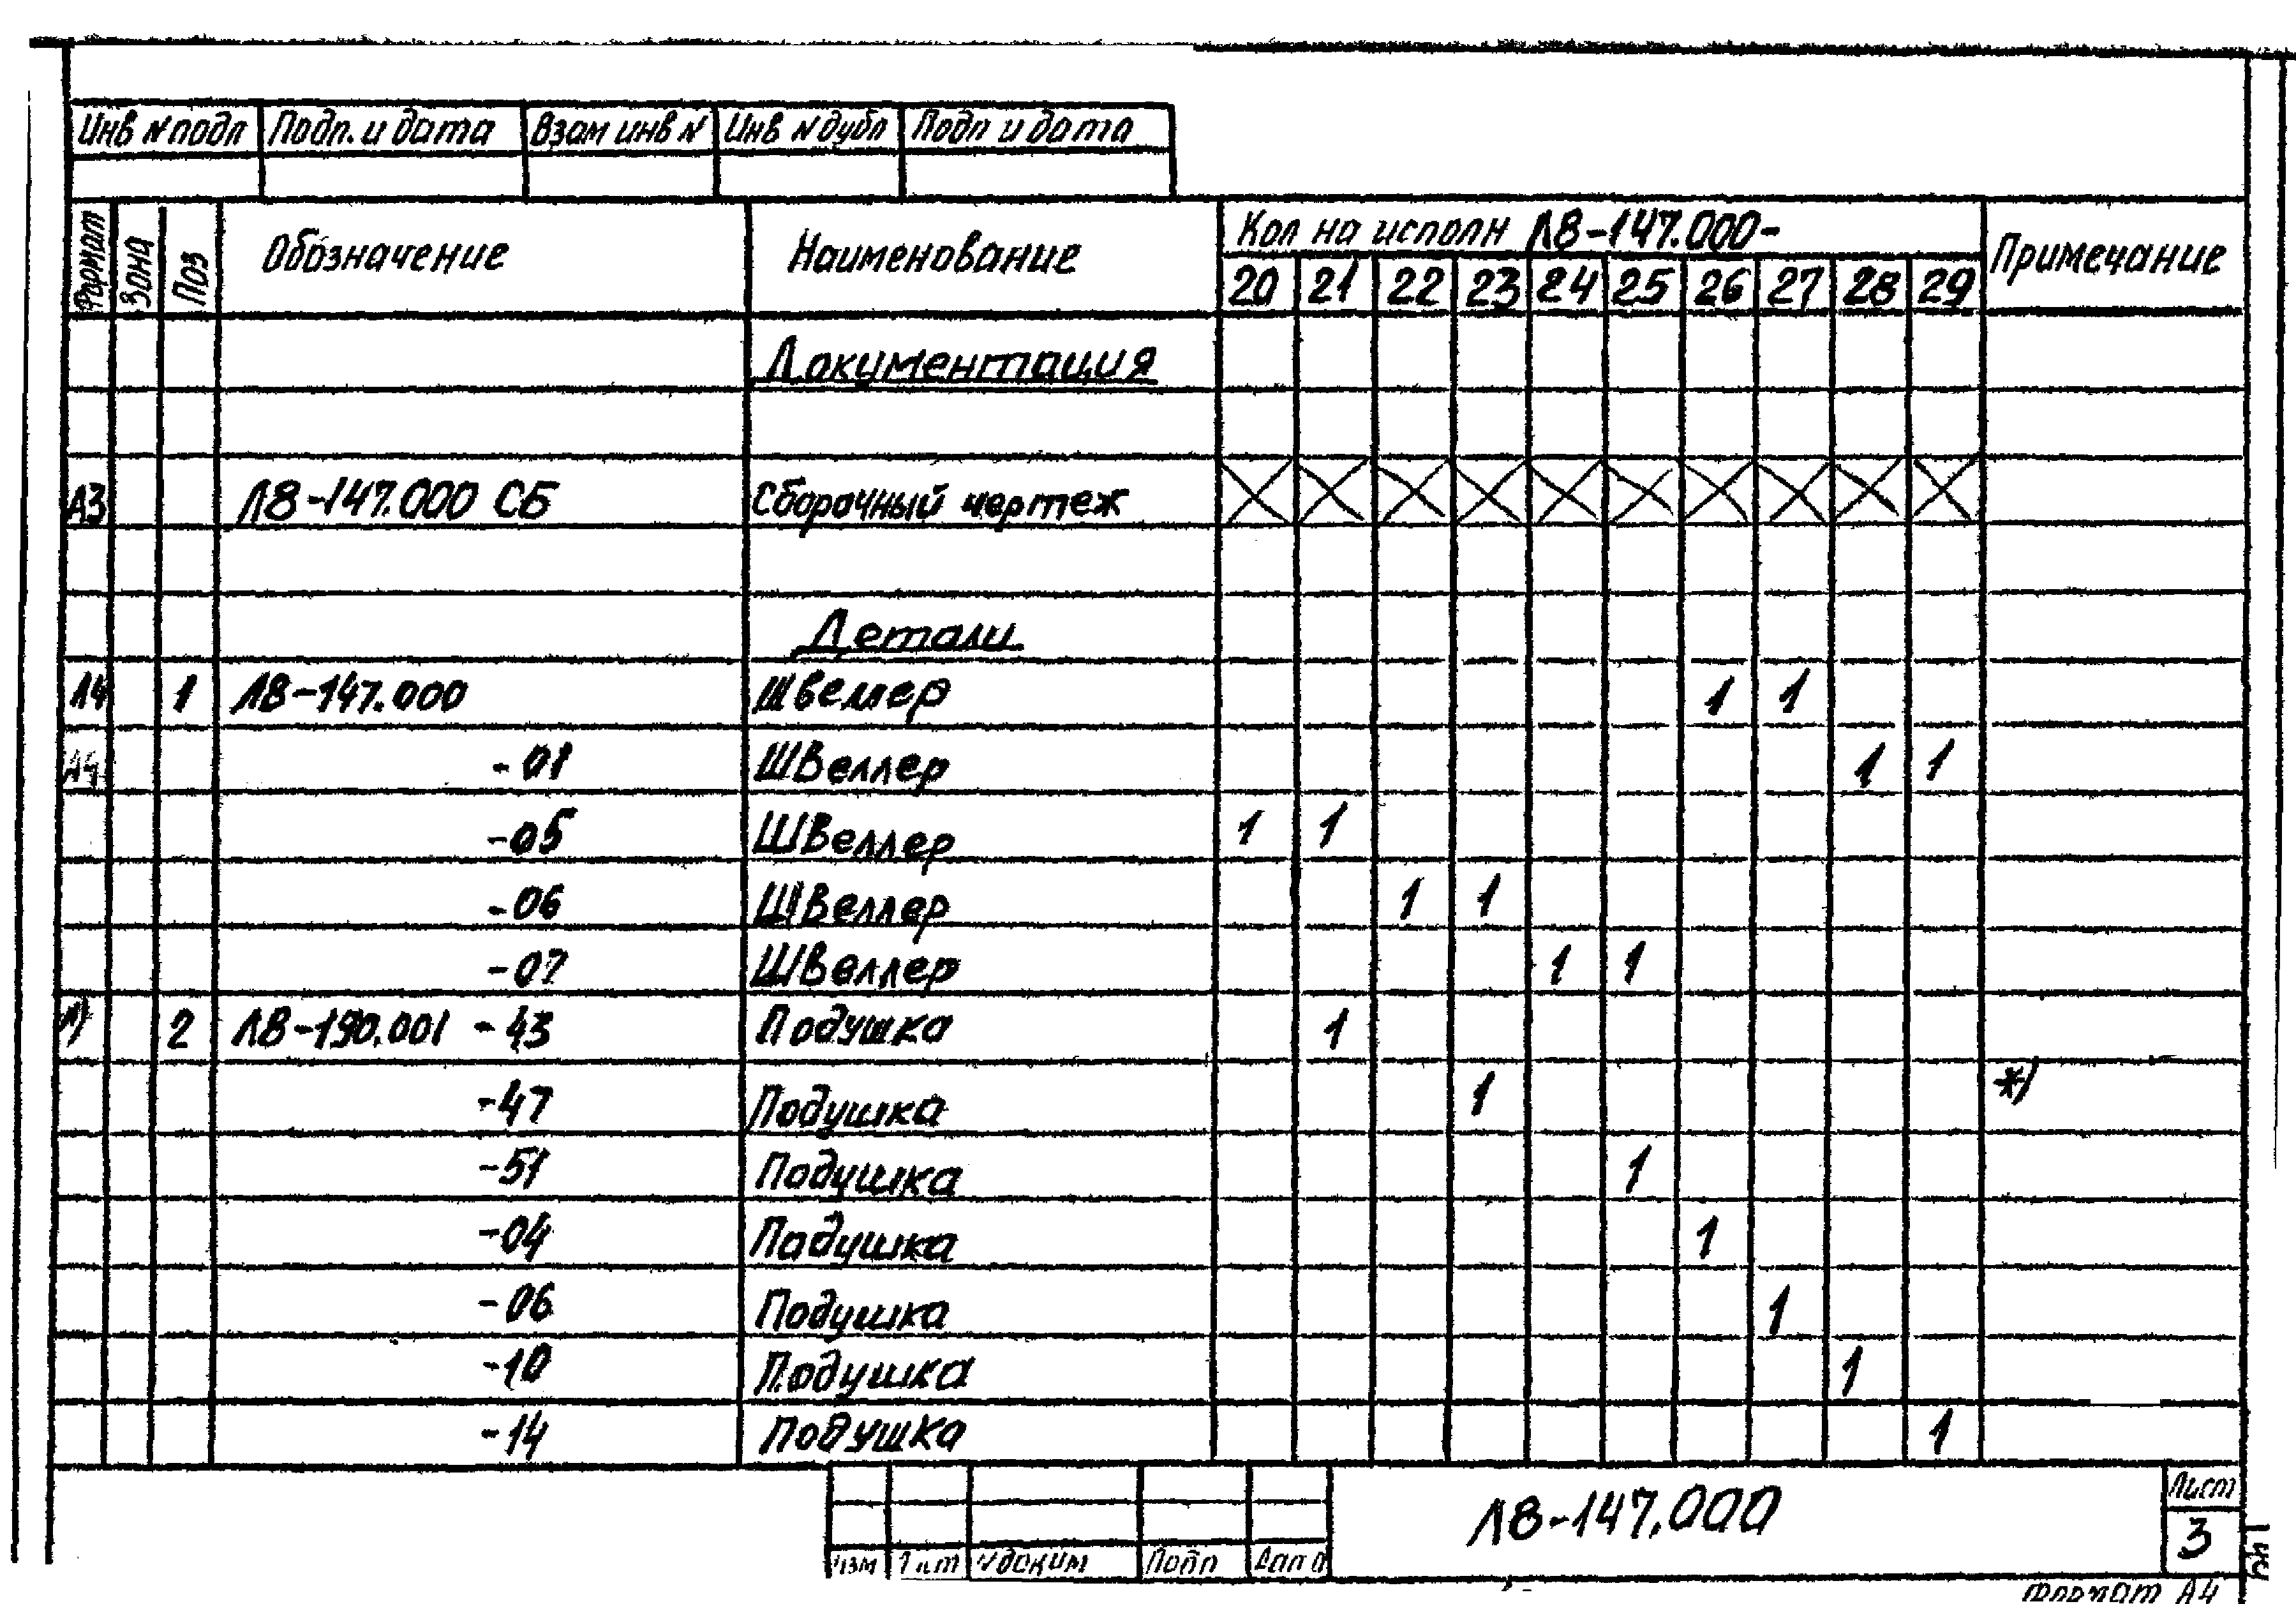 Инв N подл Подп. и дата Взам инв N Инв N дубл Подп и дата
Формат Зона Поз Обозначение Наименование Кол на исполн Л8-147.000- Примечание
20 21 22 23 24 25 26 27 28 29
Документация
А3 Л8-147.000 СБ Сборочный чертеж
Детали
А4 1 Л8-147.000 Швеллер 1 1
А4 -01 Швеллер 1 1
-05 Швеллер 1 1
-06 Швеллер 1 1
-07 Швеллер 1 1
2 Л8-190.001 -43 Подушка 1
-47 Подушка 1 *)
-51 Подушка 1
-04 Подушка 1
-06 Подушка 1
-10 Подушка 1
-14 Подушка 1
Л8-147.000 Лист
3
Изм Лист N докум Подп Дата
Формат А4